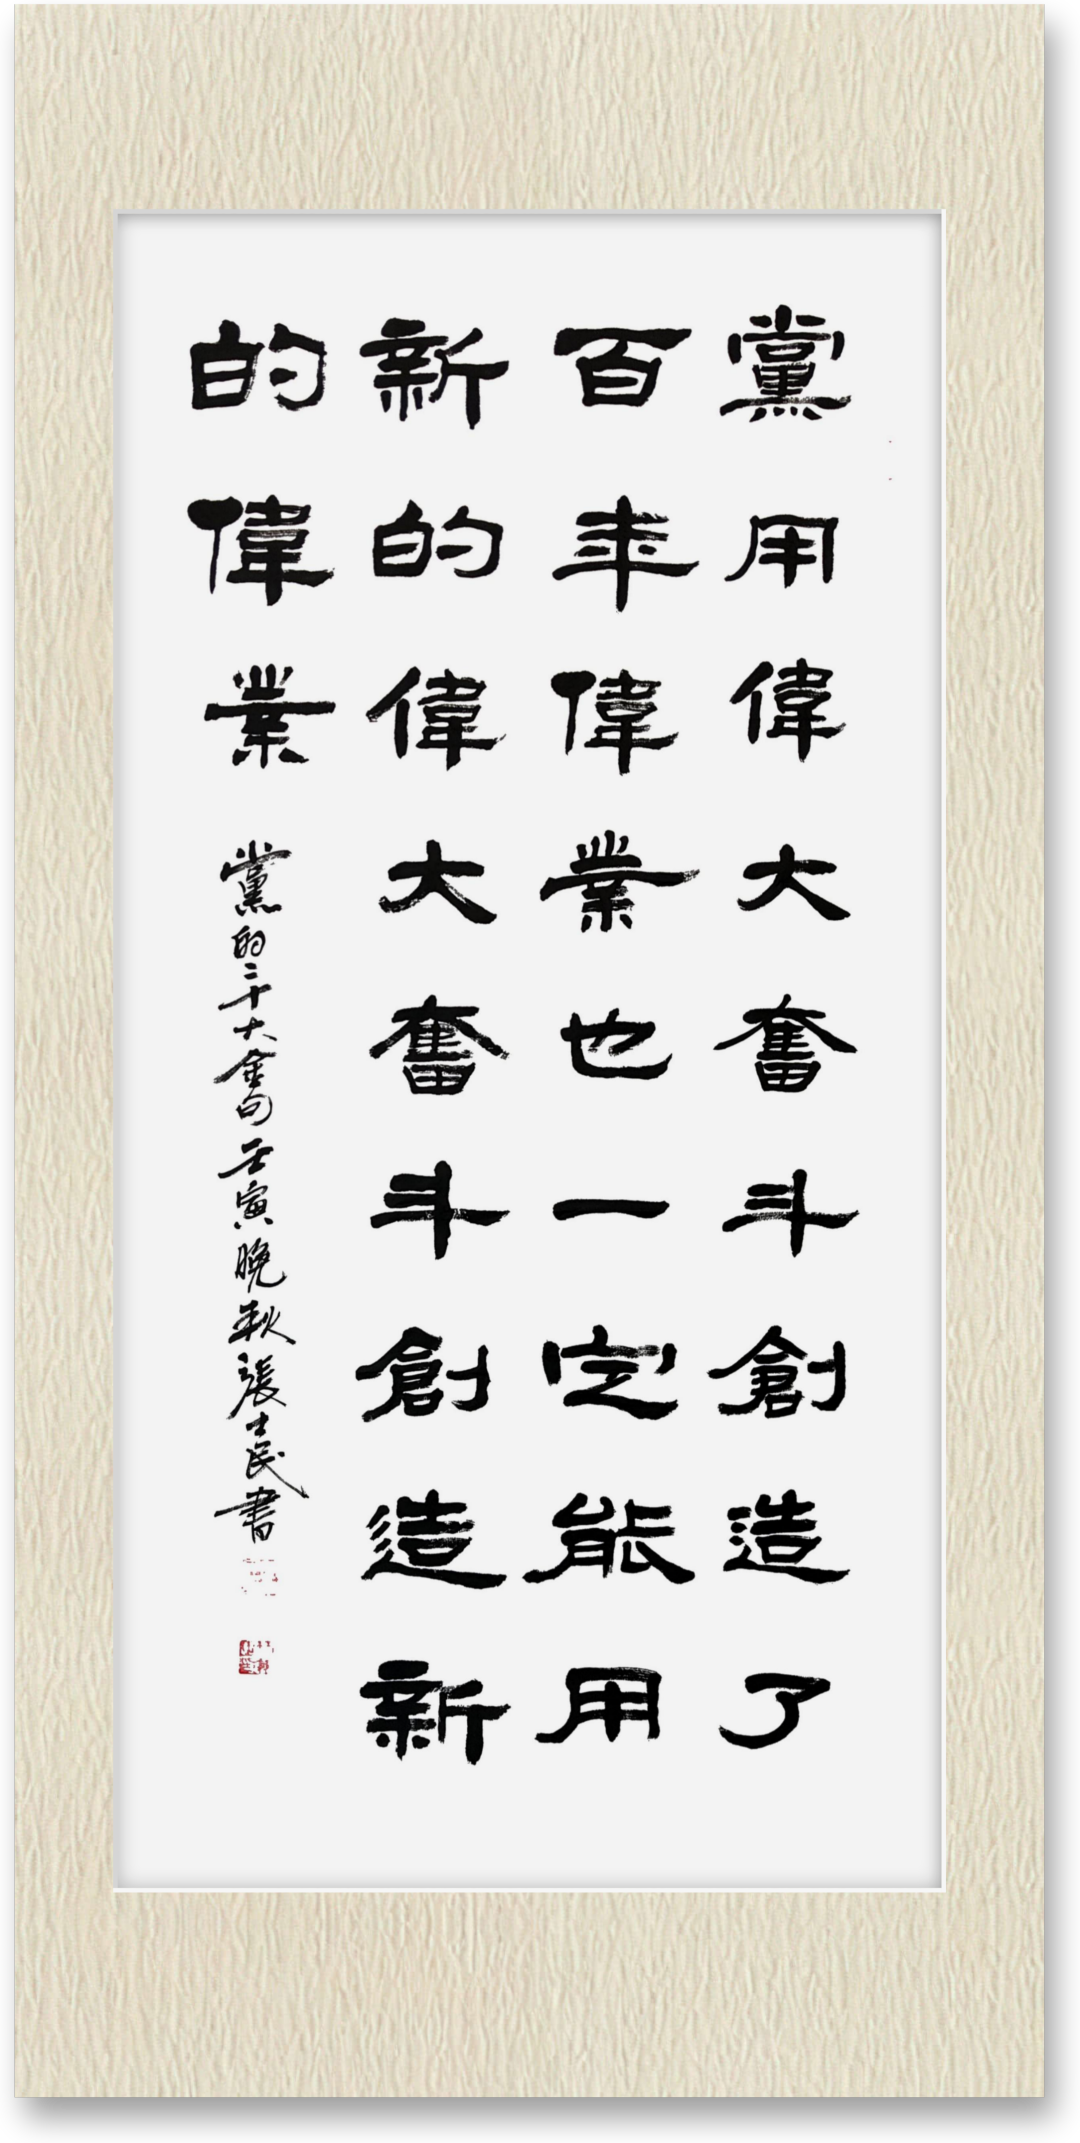 黨用偉大奮斗創造了
百年偉業也一定能用
新的偉大奮斗創造新
的偉業
黨的二十大金句壬寅晚秋張士民書